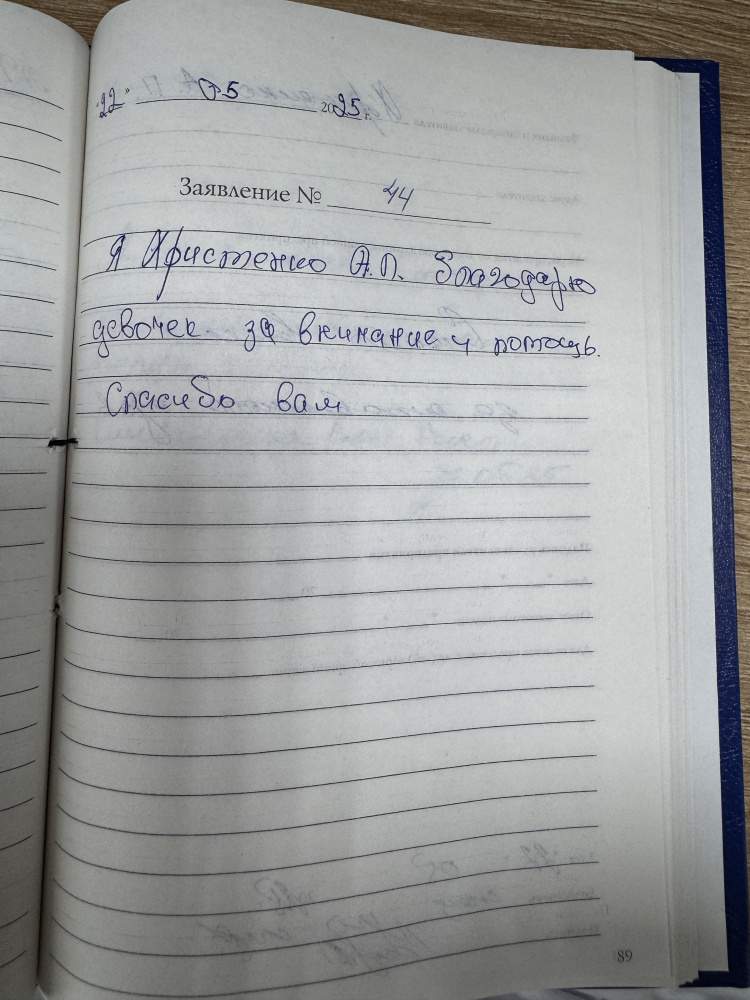 "22" 05 2025 г.
Заявление № 44
Я Христенко А.П. благодарю
девочек за внимание и помощь.
Спасибо вам
89